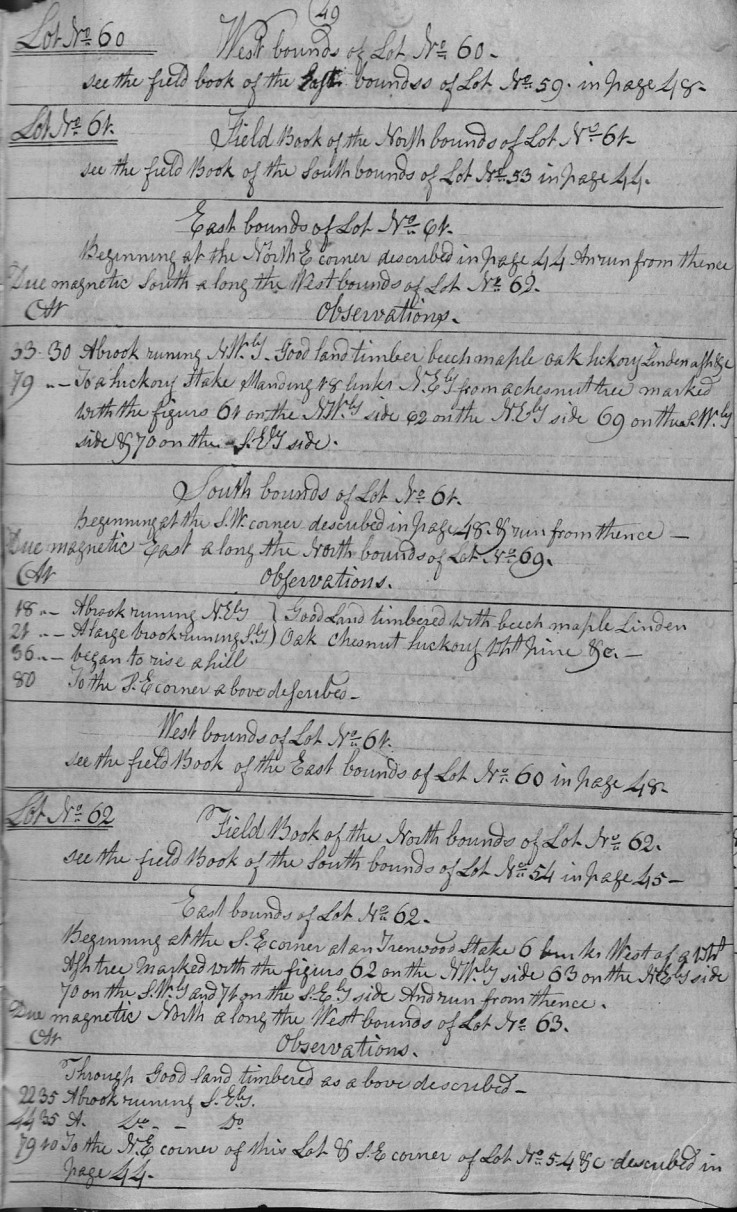 49
Lot No. 60
West bounds of Lot No. 60.
see the field book of the East boundss of Lot No. 59. in page 48.
Lot No. 61.
Field Book of the North bounds of Lot No. 61.
see the field Book of the South bounds of Lot No. 53 in page 44.
East bounds of Lot No. 61.
Beginning at the North E corner described in page 44 An run from thence
Due magnetic South a long the West bounds of Lot No. 62.
Ch
Observations.
33-30 A brook runing N.W.ly Good land timber beech maple oak hickory Linden ash &c
79 " - To a hickory Stake standing 18 links N.E.ly from a chesnut tree marked
with the figurs 61 on the N.W.ly side 62 on the N.E.ly side 69 on the S.W.ly
side & 70 on the S.E.ly side.
South bounds of Lot No. 61.
beginning at the S.W. corner described in page 48. & run from thence —
Due magnetic East a long the North bounds of Lot No. 69.
Observations.
18 " - A brook runing N.E.ly } Good Land timbered with beech maple Linden
21 " - A large brook runing S.ly } Oak chesnut hickory wht pine &c. —
36 " - began to rise a hill
80 To the S.E corner a bove describes -
West bounds of Lot No. 61.
see the field Book of the East bounds of Lot No. 60 in page 48.
Lot No. 62
Field Book of the North bounds of Lot No. 62.
see the field Book of the South bounds of Lot No. 54 in page 45 -
East bounds of Lot No. 62.
Beginning at the S.E corner at an Irenwood Stake 6 links West of a wht
Ash tree marked with the figurs 62 on the N.W.ly side 63 on the N.E.ly side
70 on the S.W.ly and 71 on the S.E.ly side And run from thence.
Due magnetic North a long the West bounds of Lot No. 63.
Observations.
Through Good land timbered as a bove described -
22 35 A brook runing S.E.ly.
44 35 A. Do. - - Do
79 40 To the N.E corner of this Lot & S.E corner of Lot No. 54 &c described in
page 44.